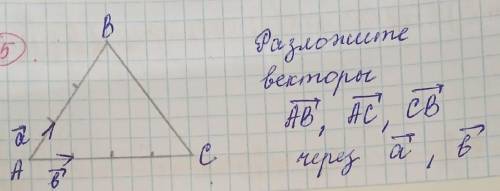 5
B
Разложите
векторы
$\overrightarrow{AB}$, $\overrightarrow{AC}$, $\overrightarrow{CB}$
через $\vec{a}$, $\vec{b}$
$\vec{a}$
A
$\vec{b}$
C